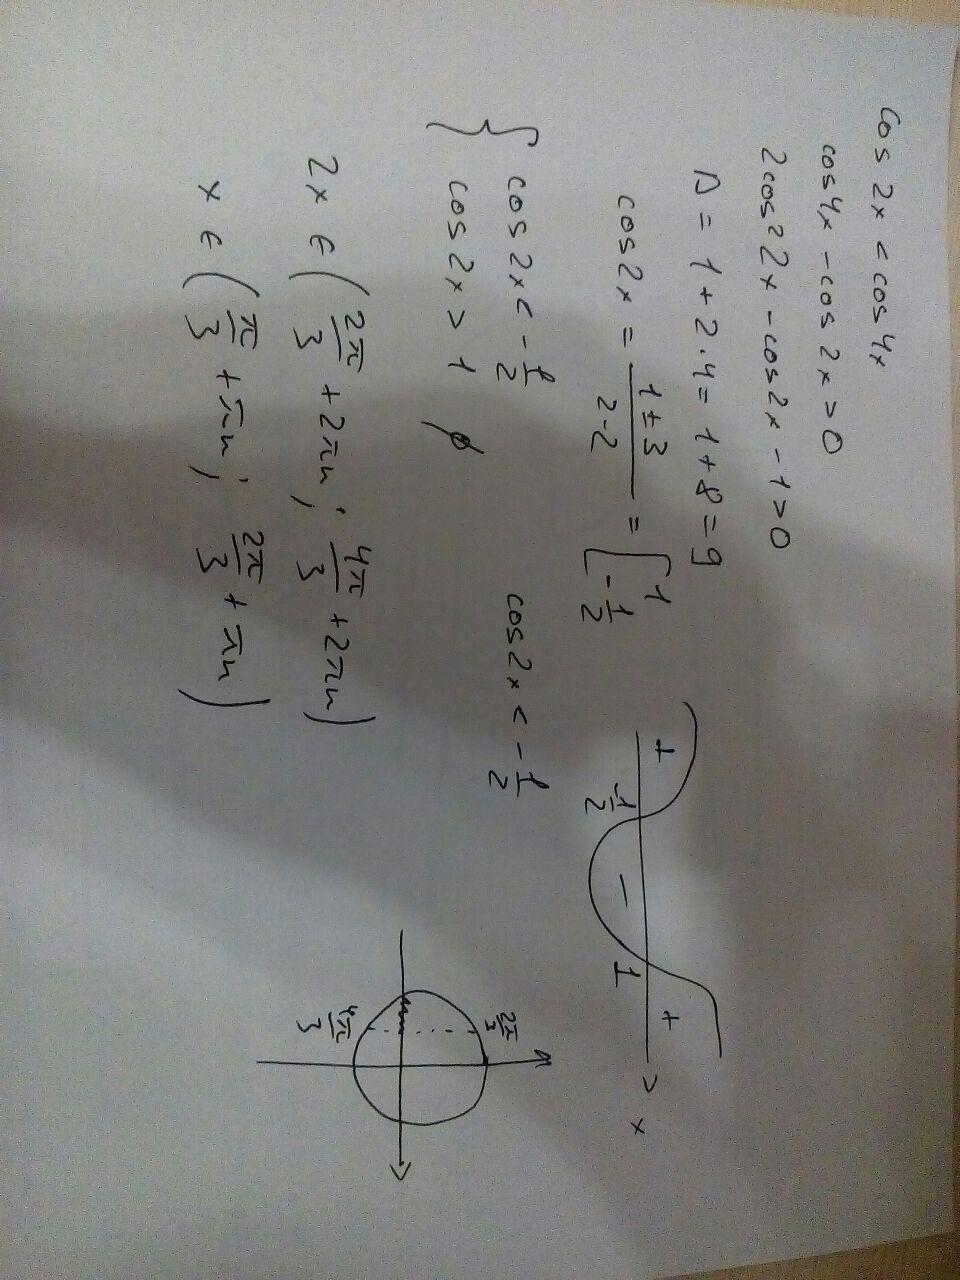 cos 2x < cos 4x
cos 4x - cos 2x > 0
2cos²2x - cos2x - 1 > 0
D = 1 + 2·4 = 1 + 8 = 9
cos2x = (1 ± 3)/(2·2) = [ 1
-1/2
+ - +
-1/2 1 x
{ cos 2x < -1/2
cos 2x > 1 ∅
cos2x < -1/2
2x ∈ (2π/3 + 2πn; 4π/3 + 2πn)
x ∈ (π/3 + πn; 2π/3 + πn)
2π/3
4π/3